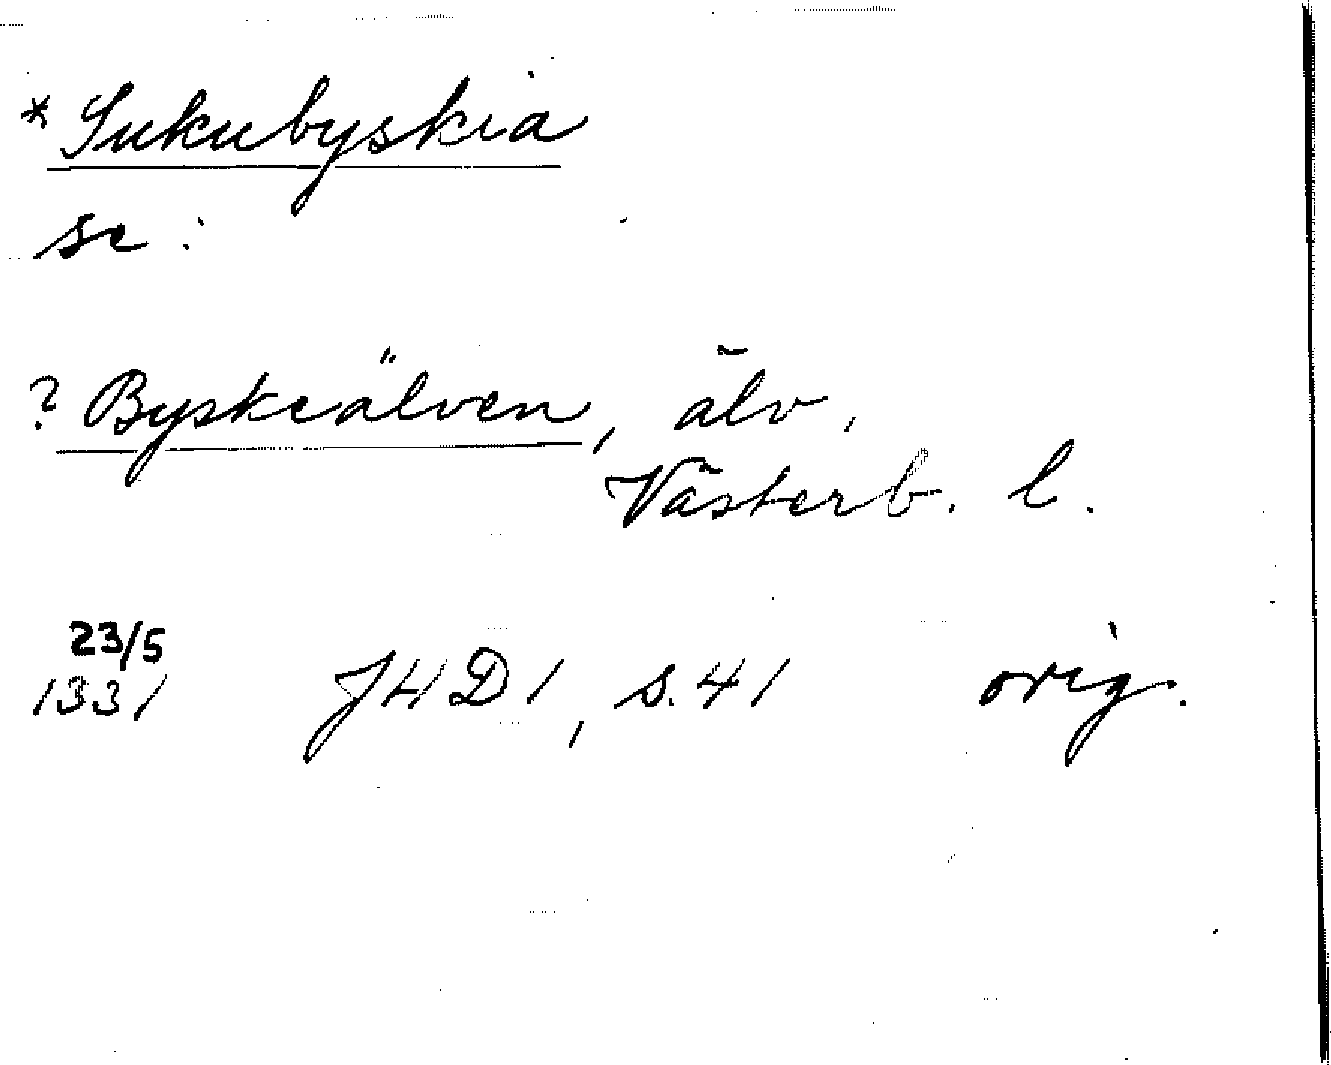 *Sukubyskia
se:
? Byskeälven, älv,
Västerb. l.
23/5
1331 J4D1, s.41 orig.